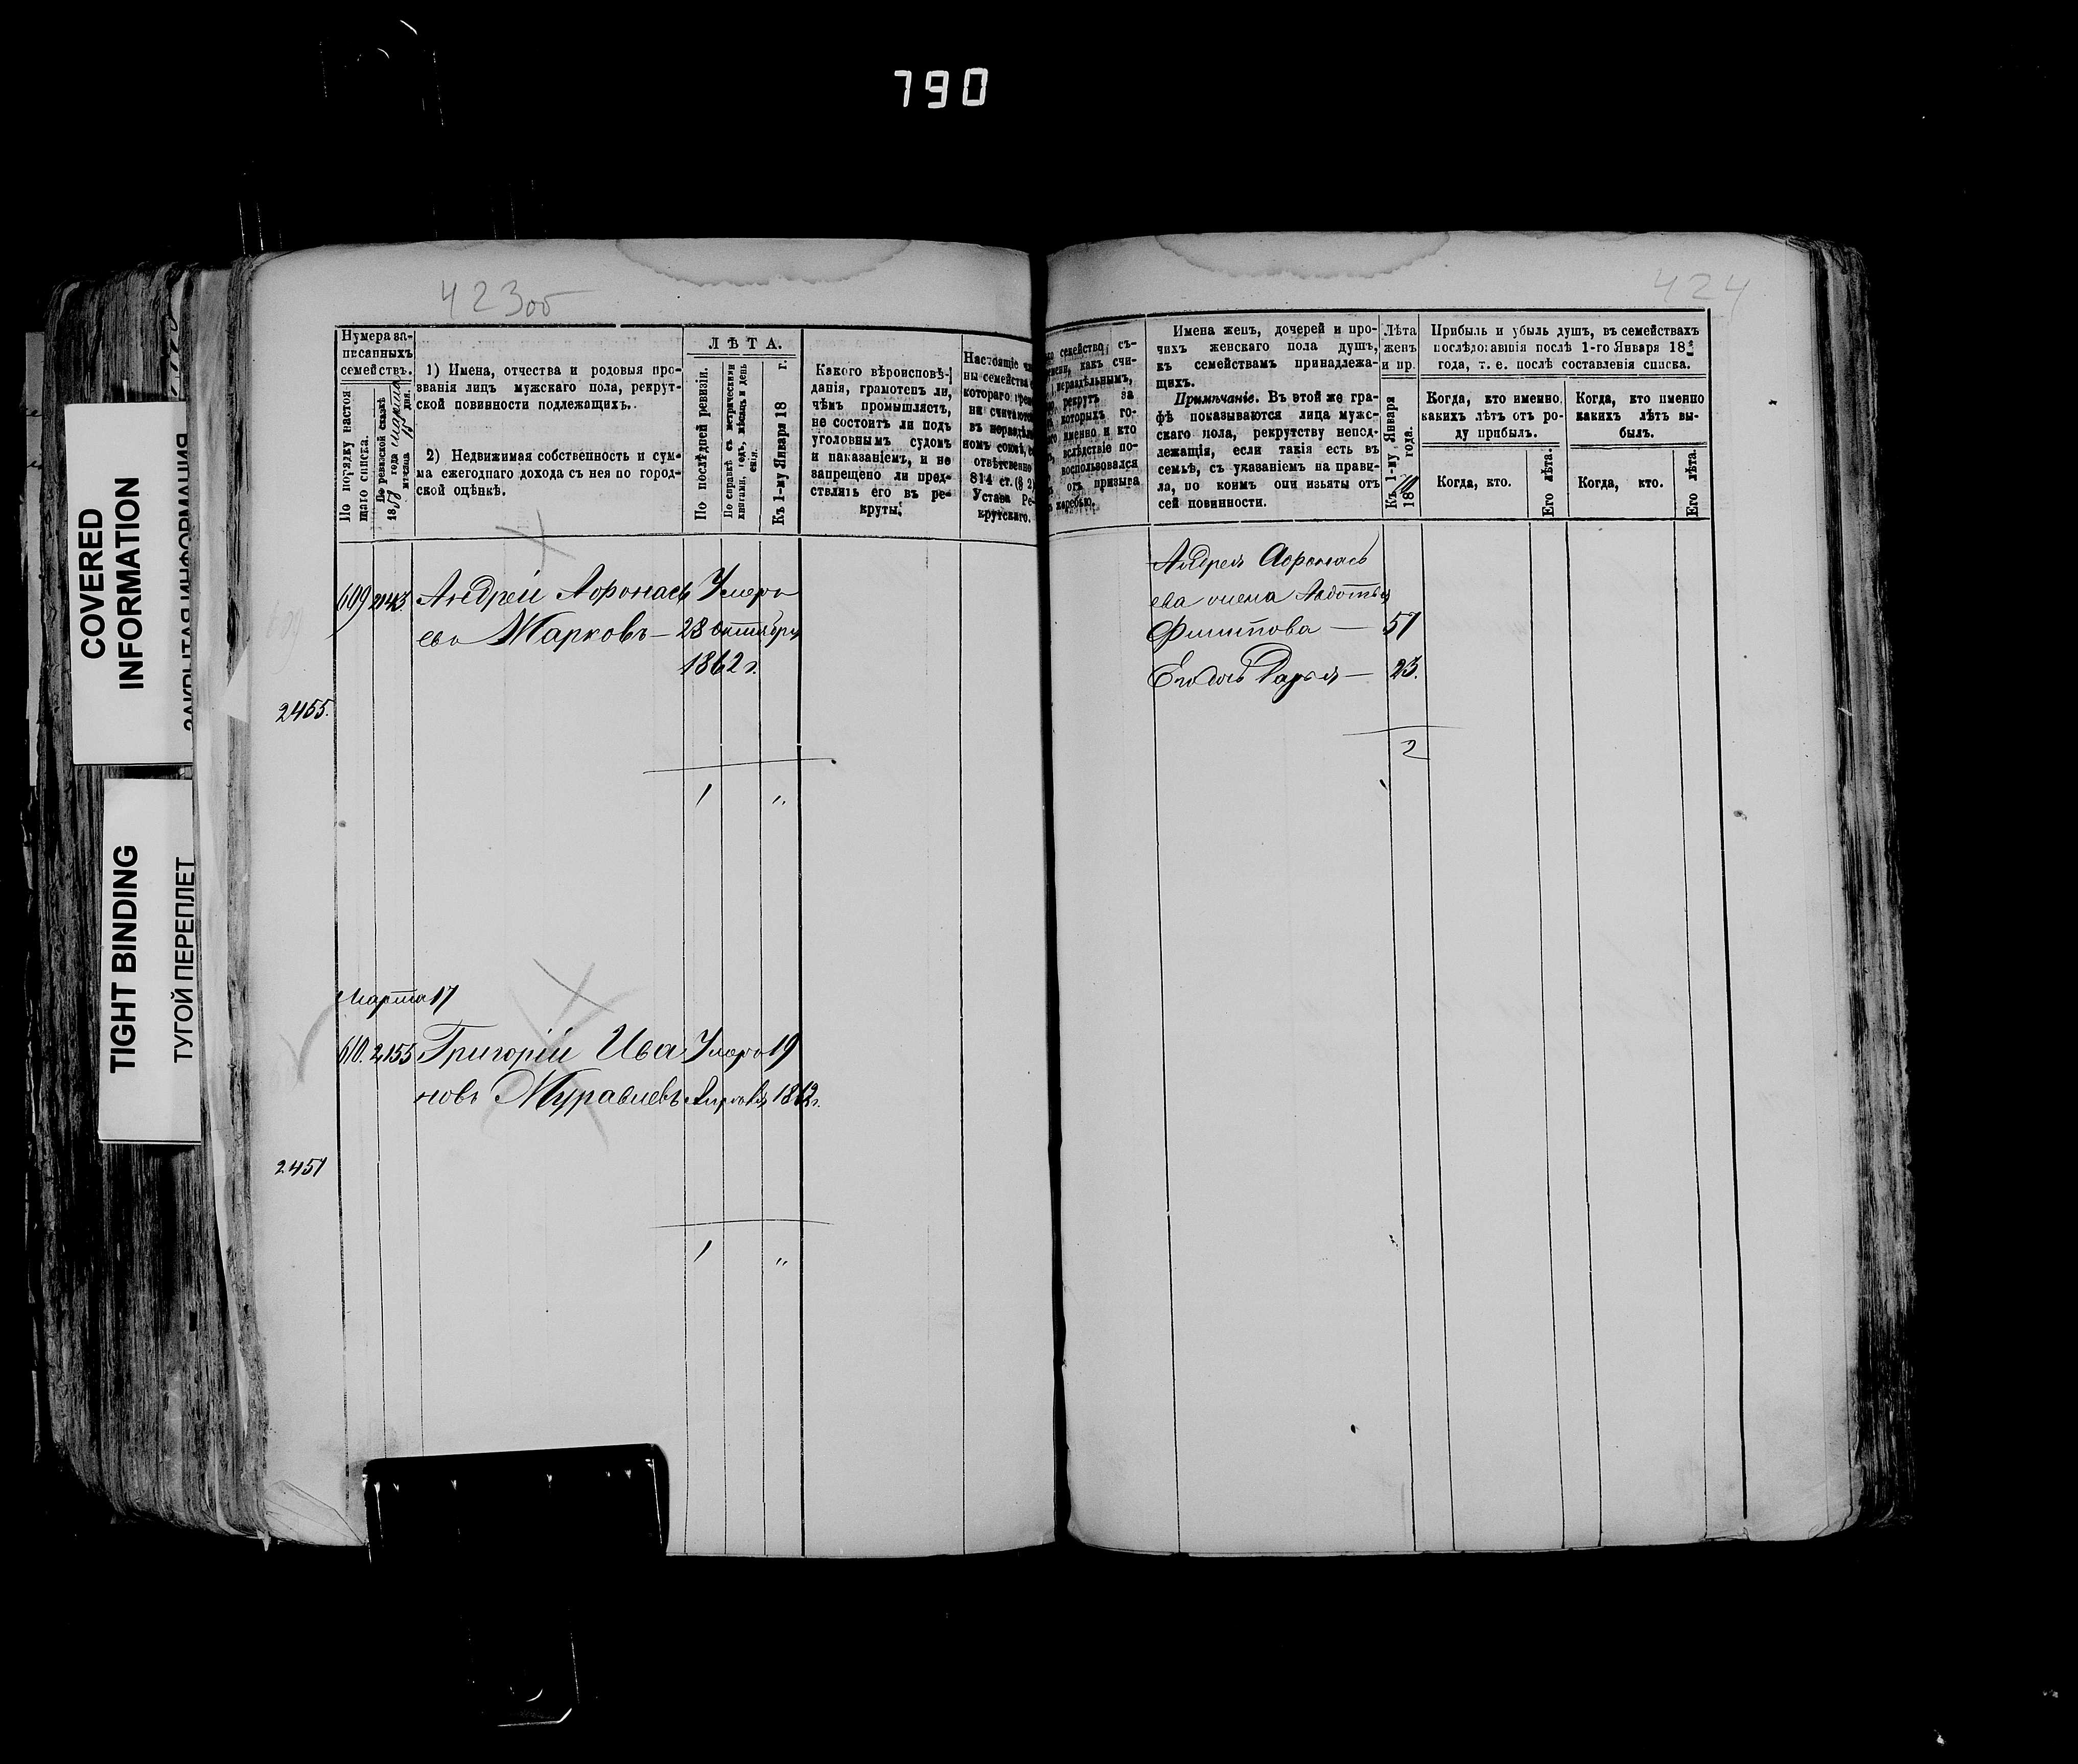 790
423об
424
COVERED
INFORMATION
ЗАКРЫТАЯ ИНФОРМАЦИЯ
TIGHT BINDING
ТУГОЙ ПЕРЕПЛЕТ
Нумера за-
писанныхъ
семействъ.
По порядку настоя-
щаго списка.
По ревизской сказкѣ
года марта
мѣсяца 15 дня.
1) Имена, отчества и родовыя про-
званія лицъ мужскаго пола, рекрут-
ской повинности подлежащихъ.
2) Недвижимая собственность и сум-
ма ежегоднаго дохода съ нея по город-
ской оцѣнкѣ.
ЛѢТА.
По послѣдней ревизіи.
По справкѣ съ метрическими
книгами, годъ, мѣсяцъ и день
Къ 1-му Января 18 г.
Какого вѣроисповѣ-
данія, грамотенъ ли,
чѣмъ промышляетъ,
не состоитъ ли подъ
уголовнымъ судомъ
и наказаніемъ, и не
запрещено ли пред-
ставлять его въ ре-
круты.
Настоящіе
ны семейства
котораго
ни считаются
въ
номъ
отвѣтственно
814 ст. (§ 2)
Устава Ре-
крутскаго.
семейство съ-
какъ счи-
нераздѣльнымъ,
рекрутъ за
которыхъ го-
именно и кто
вслѣдствіе по-
воспользовался
отъ призыва
жеребью.
Имена женъ, дочерей и про-
чихъ женскаго пола душъ,
къ семействамъ принадлежа-
щихъ.
Примѣчаніе. Въ этой же гра-
фѣ показываются лица мужс-
скаго пола, рекрутству непод-
лежащія, если такія есть въ
семьѣ, съ указаніемъ на прави-
ла, по коимъ они изъяты отъ
сей повинности.
Лѣта
женъ
и пр.
Къ 1-му Января
1870 года.
Прибыль и убыль душъ, въ семействахъ
послѣдовавшія послѣ 1-го Января 18
года, т. е. послѣ составленія списка.
Когда, кто именно
какихъ лѣтъ отъ ро-
ду прибылъ.
Когда, кто именно
какихъ лѣтъ вы-
былъ.
Когда, кто.
Его лѣта.
Когда, кто.
Его лѣта.
609 2143 Андрей Афонась Умеръ
евъ Марковъ — 28 октября
1862 г.
2455.
1 "
Андрея Афонась
ева жена Авдотья
Филипова — 57
Его дочь Дарья — 23.
2
Марта 17
610. 2155 Григорій Ива Умеръ 19
новъ Муравиевъ Апрѣля 1862 г.
2457
1 "